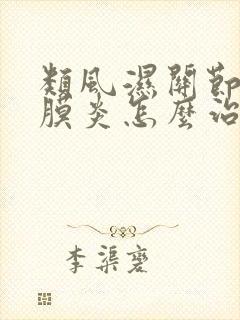 類風濕關節
膜炎怎麼治
李渠蹇